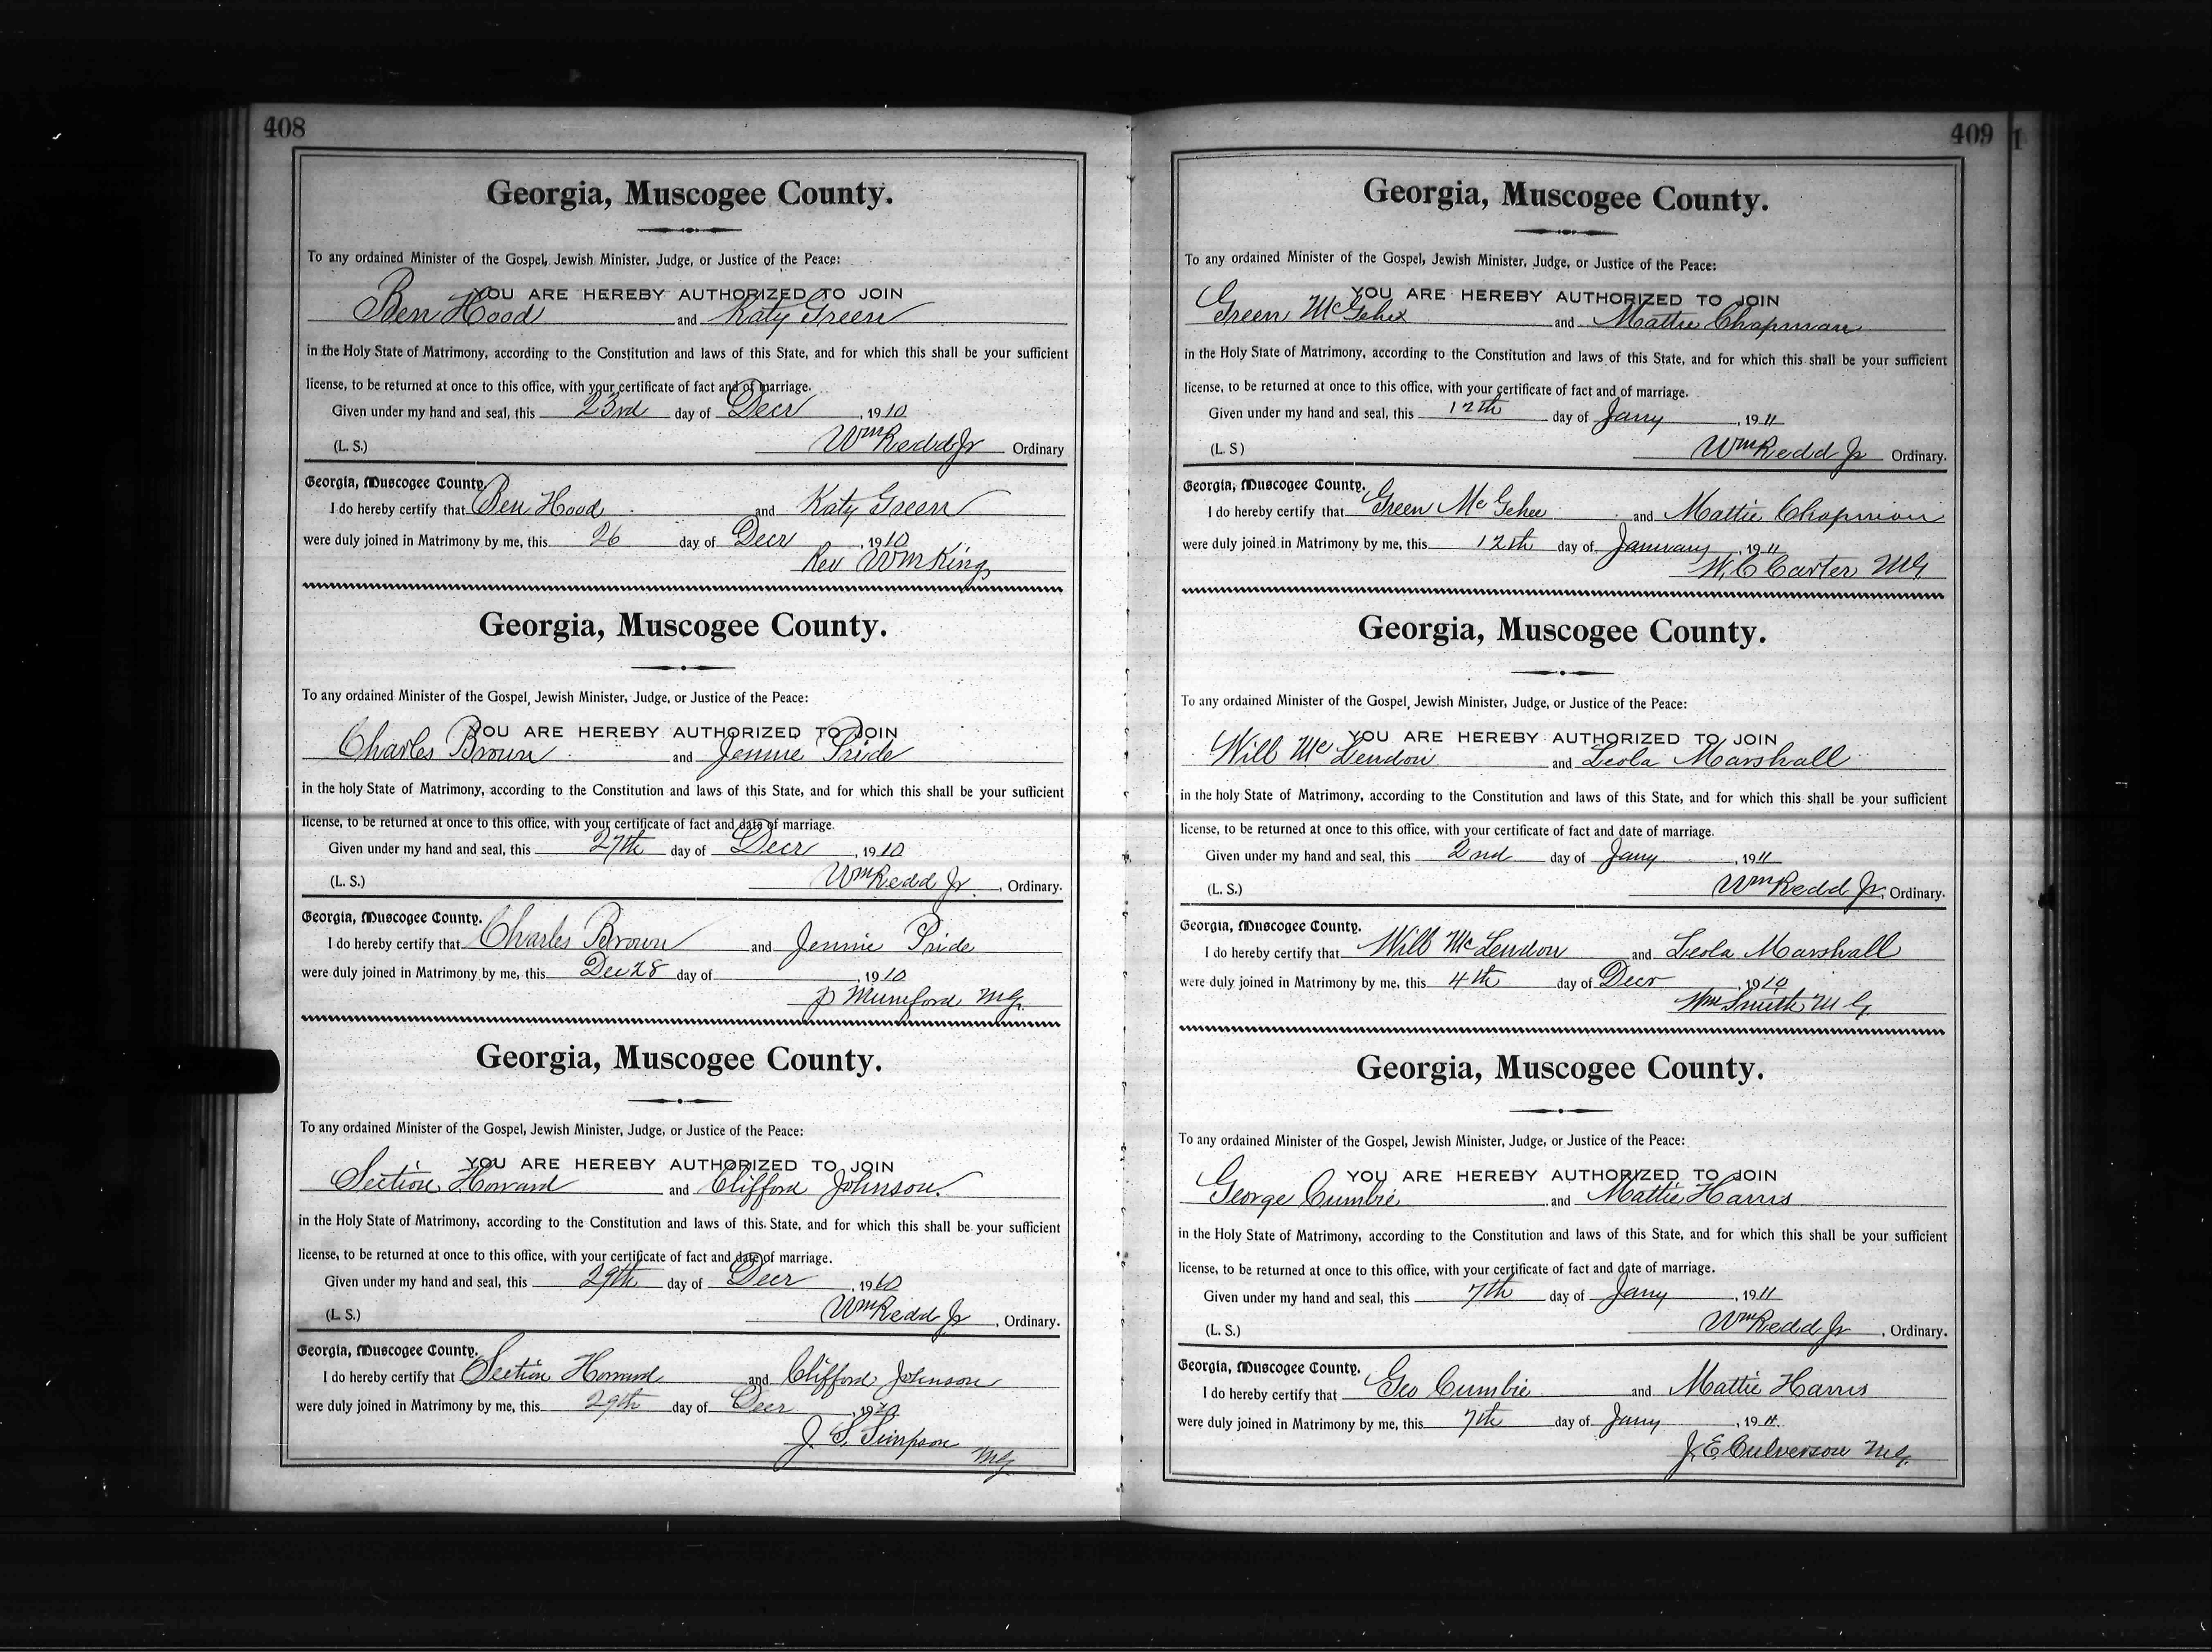 408
Georgia, Muscogee County.
To any ordained Minister of the Gospel, Jewish Minister, Judge, or Justice of the Peace:
YOU ARE HEREBY AUTHORIZED TO JOIN
Ben Hood and Katy Green
in the Holy State of Matrimony, according to the Constitution and laws of this State, and for which this shall be your sufficient
license, to be returned at once to this office, with your certificate of fact and of marriage.
Given under my hand and seal, this 23rd day of Decr , 1910
(L. S.) Wm Redd Jr Ordinary
Georgia, Muscogee County.
I do hereby certify that Ben Hood and Katy Green
were duly joined in Matrimony by me, this 26 day of Decr , 1910
Rev Wm King
Georgia, Muscogee County.
To any ordained Minister of the Gospel, Jewish Minister, Judge, or Justice of the Peace:
YOU ARE HEREBY AUTHORIZED TO JOIN
Charles Brown and Jennie Pride
in the holy State of Matrimony, according to the Constitution and laws of this State, and for which this shall be your sufficient
license, to be returned at once to this office, with your certificate of fact and date of marriage.
Given under my hand and seal, this 27th day of Decr , 1910
(L. S.) Wm Redd Jr. , Ordinary.
Georgia, Muscogee County.
I do hereby certify that Charles Brown and Jennie Pride
were duly joined in Matrimony by me, this Dec 28 day of , 1910
P Mumford MG.
Georgia, Muscogee County.
To any ordained Minister of the Gospel, Jewish Minister, Judge, or Justice of the Peace:
YOU ARE HEREBY AUTHORIZED TO JOIN
Section Howard and Clifford Johnson.
in the Holy State of Matrimony, according to the Constitution and laws of this State, and for which this shall be your sufficient
license, to be returned at once to this office, with your certificate of fact and date of marriage.
Given under my hand and seal, this 29th day of Decr , 1910
(L. S.) Wm Redd Jr , Ordinary.
Georgia, Muscogee County.
I do hereby certify that Section Howard and Clifford Johnson
were duly joined in Matrimony by me, this 29th day of Decr , 1910
J. S. Simpson
MG
409
1
Georgia, Muscogee County.
To any ordained Minister of the Gospel, Jewish Minister, Judge, or Justice of the Peace:
YOU ARE HEREBY AUTHORIZED TO JOIN
Green McGehee and Mattie Chapman
in the Holy State of Matrimony, according to the Constitution and laws of this State, and for which this shall be your sufficient
license, to be returned at once to this office, with your certificate of fact and of marriage.
Given under my hand and seal, this 12th day of Jany , 1911
(L. S) Wm Redd Jr Ordinary.
Georgia, Muscogee County.
I do hereby certify that Green McGehee and Mattie Chapman
were duly joined in Matrimony by me, this 12th day of January , 1911
W. C Carter MG
Georgia, Muscogee County.
To any ordained Minister of the Gospel, Jewish Minister, Judge, or Justice of the Peace:
YOU ARE HEREBY AUTHORIZED TO JOIN
Will McLendon and Leola Marshall
in the holy State of Matrimony, according to the Constitution and laws of this State, and for which this shall be your sufficient
license, to be returned at once to this office, with your certificate of fact and date of marriage.
Given under my hand and seal, this 2nd day of Jany , 1911
(L. S.) Wm Redd Jr, Ordinary.
Georgia, Muscogee County.
I do hereby certify that Will McLendon and Leola Marshall
were duly joined in Matrimony by me, this 4th day of Decr , 1910
Wm Smith M G.
Georgia, Muscogee County.
To any ordained Minister of the Gospel, Jewish Minister, Judge, or Justice of the Peace:
YOU ARE HEREBY AUTHORIZED TO JOIN
George Cumbie and Mattie Harris
in the Holy State of Matrimony, according to the Constitution and laws of this State, and for which this shall be your sufficient
license, to be returned at once to this office, with your certificate of fact and date of marriage.
Given under my hand and seal, this 7th day of Jany , 1911
(L. S.) Wm Redd Jr , Ordinary.
Georgia, Muscogee County.
I do hereby certify that Geo Cumbie and Mattie Harris
were duly joined in Matrimony by me, this 7th day of Jany , 1911.
J. E. Culverson MG.